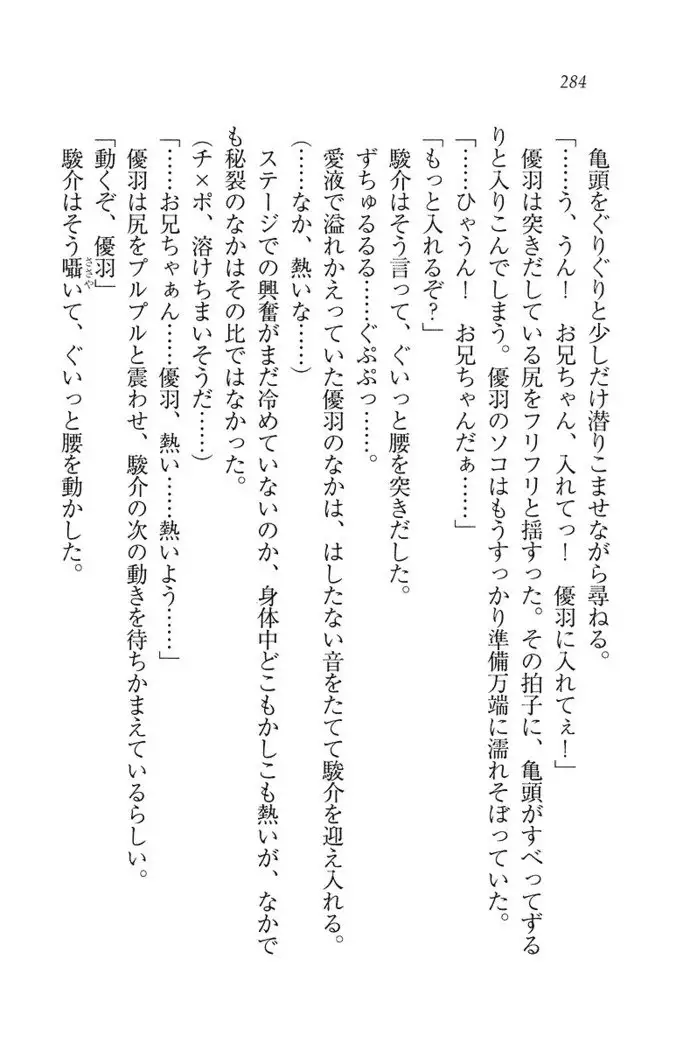 284
亀頭をぐりぐりと少しだけ潜りこませながら尋ねる。
「……う、うん！　お兄ちゃん、入れてっ！　優羽に入れてぇ！」
優羽は突きだしている尻をフリフリと揺すった。その拍子に、亀頭がすべってずる
りと入りこんでしまう。優羽のソコはもうすっかり準備万端に濡れそぼっていた。
「……ひゃうん！　お兄ちゃんだぁ……」
「もっと入れるぞ？」
駿介はそう言って、ぐいっと腰を突きだした。
ずちゅるるる……ぐぷぷっ……。
愛液で溢れかえっていた優羽のなかは、はしたない音をたてて駿介を迎え入れる。
（……なか、熱いな……）
ステージでの興奮がまだ冷めていないのか、身体中どこもかしこも熱いが、なかで
も秘裂のなかはその比ではなかった。
（チ×ポ、溶けちまいそうだ……）
「……お兄ちゃぁん……優羽、熱い……熱いよう……」
優羽は尻をプルプルと震わせ、駿介の次の動きを待ちかまえているらしい。
「動くぞ、優羽」
駿介はそう囁いて、ぐいっと腰を動かした。
ささや